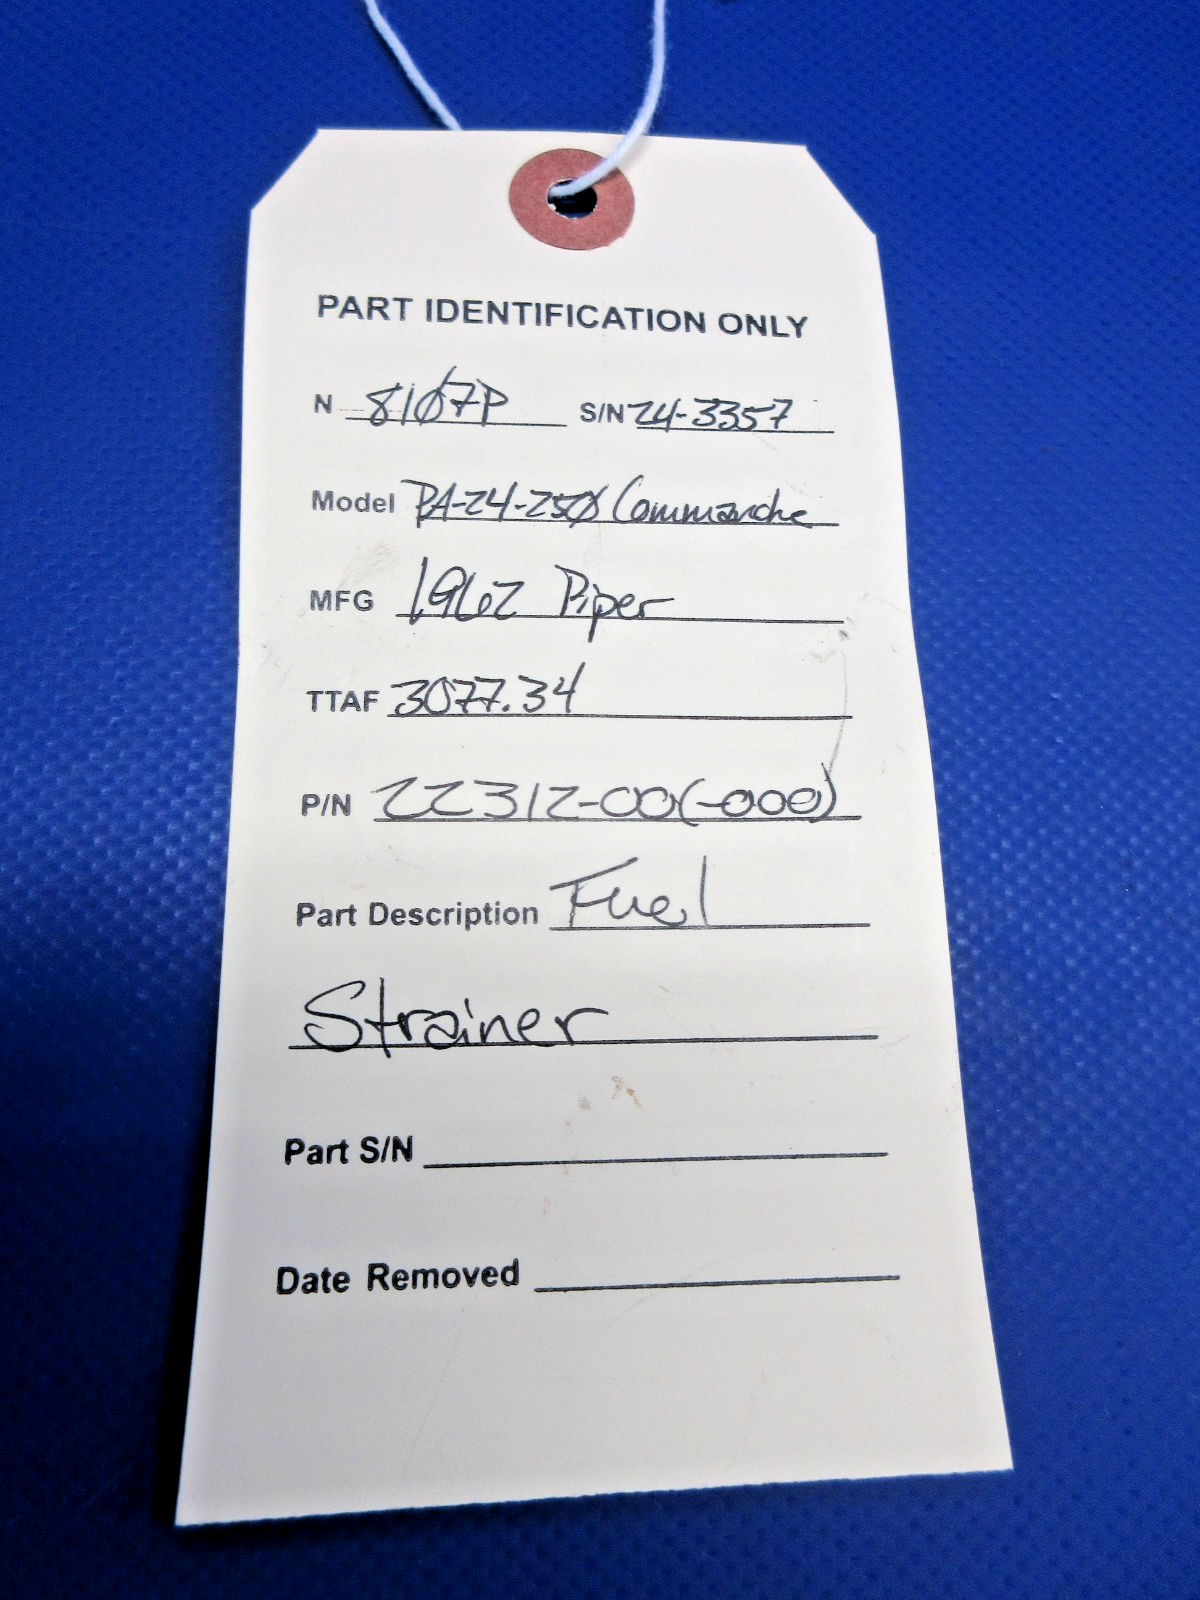 PART IDENTIFICATION ONLY
N 8107P S/N 24-3357
Model PA-24-250 Commanche
MFG 1962 Piper
TTAF 3077.34
P/N 22312-00(-000)
Part Description Fuel
Strainer
Part S/N
Date Removed